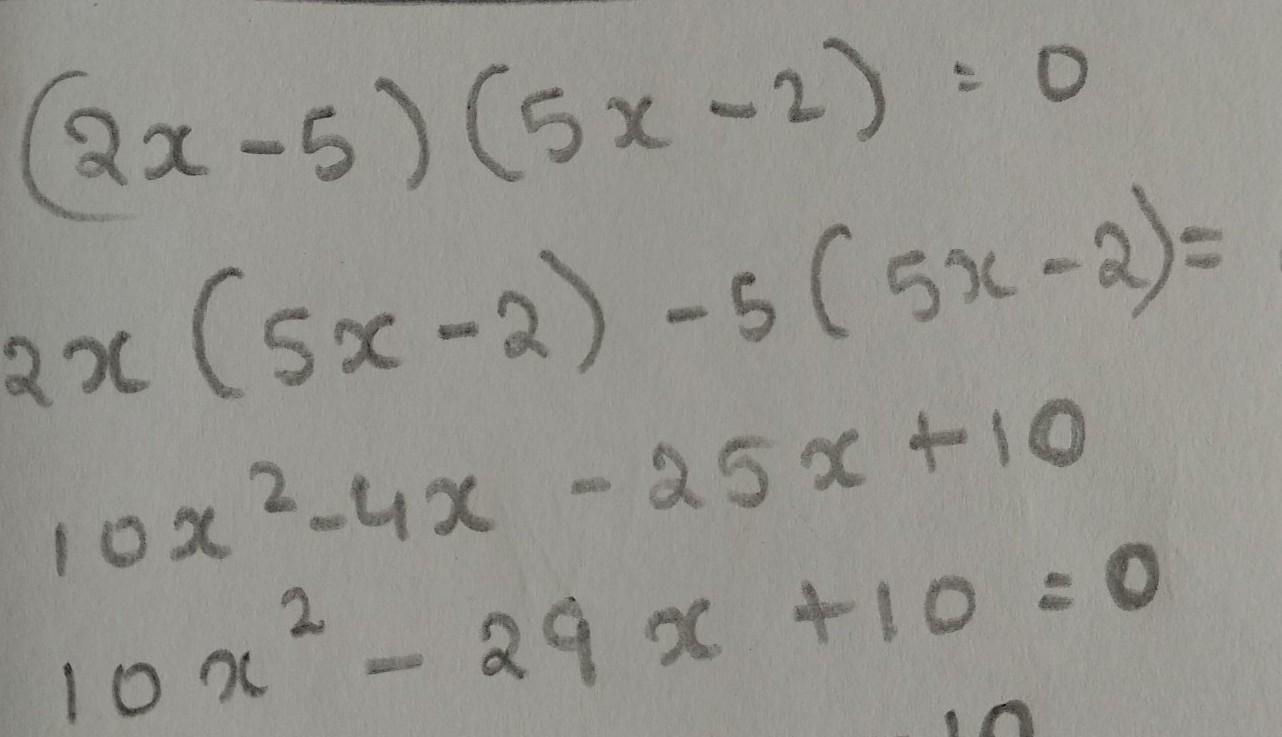 (2x - 5) (5x - 2) = 0
2x (5x - 2) - 5 (5x - 2) =
10x² - 4x - 25x + 10
10x² - 29x + 10 = 0